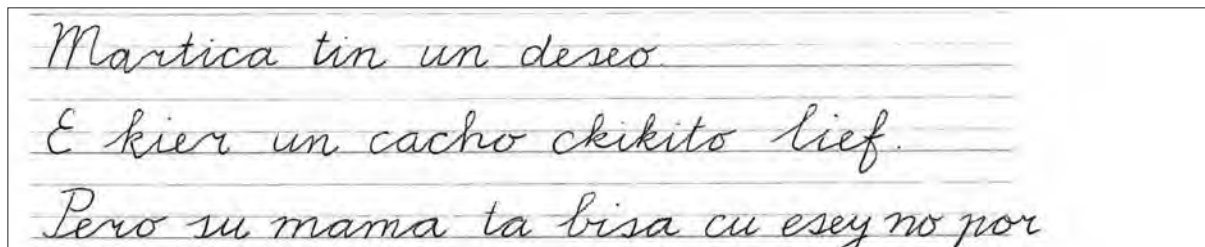 Martica tin un deseo.
E kier un cacho ckikito lief.
Pero su mama ta bisa cu esey no por